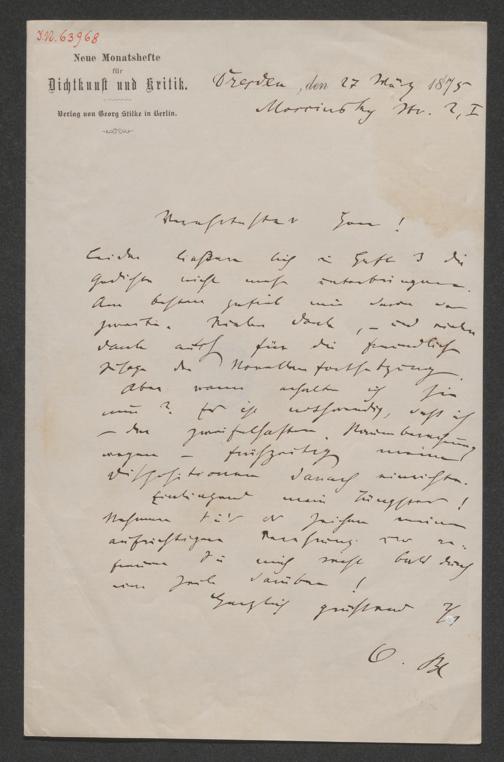 I.N. 63968
Neue Monatshefte
für
Dichtkunst und Kritik.
Verlag von Georg Stilke in Berlin.
Dresden, den 27 März 1875
Str. 2, I
Verehrtester Herr!
Leider ließen sich in Heft 3 die
Gedichte nicht mehr unterbringen.
Am besten gefiel mir davon das
zweite. Vielen Dank, – und vielen
Dank auch für die freundliche
Zusage der Novellenfortsetzung.
Aber wann erhalte ich sie
nun? Es ist nothwendig, daß ich
– der zweifelhaften Raumberechnung
wegen – frühzeitig meine
Dispositionen danach einrichte.
Einliegend mein Jüngstes!
Nehmen Sie's als Zeichen meiner
aufrichtigen Verehrung und er-
freuen Sie mich recht bald durch
eine Zeile darüber!
Herzlich grüßend Ihr
O. Bl